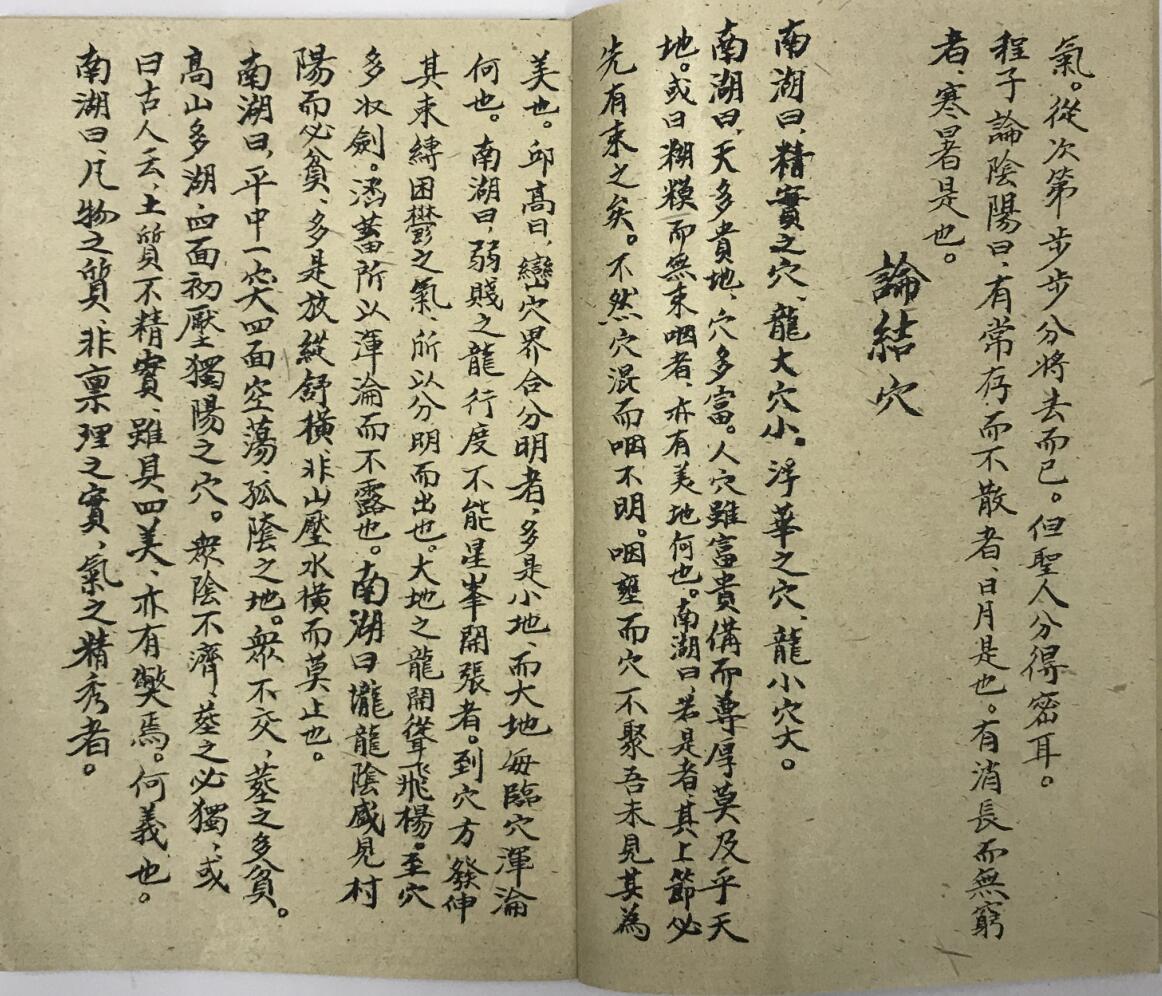 氣。從次第步步分將去而已。但聖人分得密耳。
程子論陰陽曰、有常存而不散者、日月是也。有消長而無窮
者、寒暑是也。
論結穴
南湖曰、精實之穴、龍大穴小。浮華之穴、龍小穴大。
南湖曰、天多貴地、穴多富。人穴雖富貴備而尊厚莫及乎天
地。或曰糊糢而無束咽者、亦有美地何也。南湖曰、若是者、其上節必
先有束之矣。不然穴混而咽不明。咽壅而穴不聚吾未見其為
美也。邱高曰、巒穴界合分明者、多是小地、而大地每臨穴渾淪
何也。南湖曰、弱賤之龍、行度不能星峯開張者。到穴方發伸
其束縛困鬱之氣、所以分明而出也。大地之龍開聳飛楊。至穴
多収劍。涵蓄所以渾淪而不露也。南湖曰壠龍陰盛見村
陽而必貧、多是放縱舒橫、非山壓水橫而莫止也。
南湖曰、平中一突四面空蕩孤陰之地。衆不交、葬之多貧。
高山多湖、四面初壓獨陽之穴。衆陰不濟、葬之必獨、或
曰古人云、土質不精實、雖具四美、亦有獘焉。何義也。
南湖曰、凡物之質、非禀理之實、氣之精秀者。